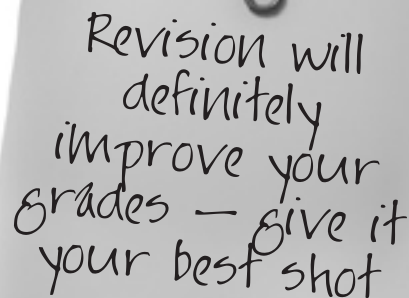 Revision will
definitely
improve your
grades — give it
your best shot